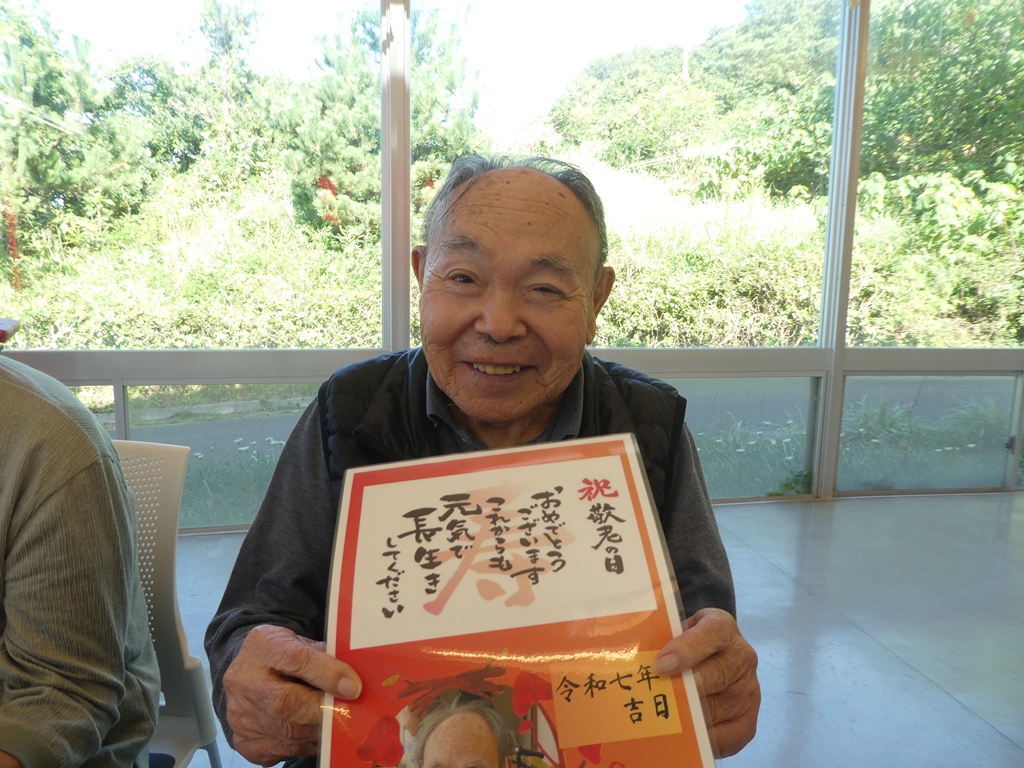 祝 敬老の日
おめでとう
ございます
これからも
元気で
長生き
してください
寿
令和七年
吉日